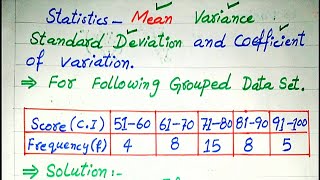 Statistics - Mean Variance
Standard Deviation and Coefficient
of variation.
⇒ For Following Grouped Data Set.
Score (C.I) 51-60 61-70 71-80 81-90 91-100
Frequency(f) 4 8 15 8 5
⇒ Solution :-